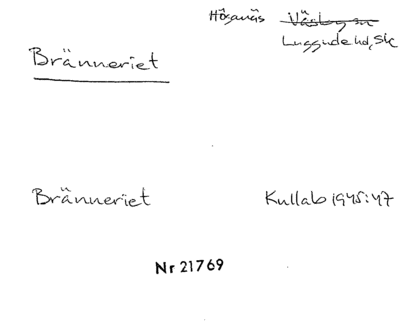 Höganäs Väsby sn
Luggude hd, Sk
Bränneriet
Bränneriet Kullab 1945:47
Nr 21769